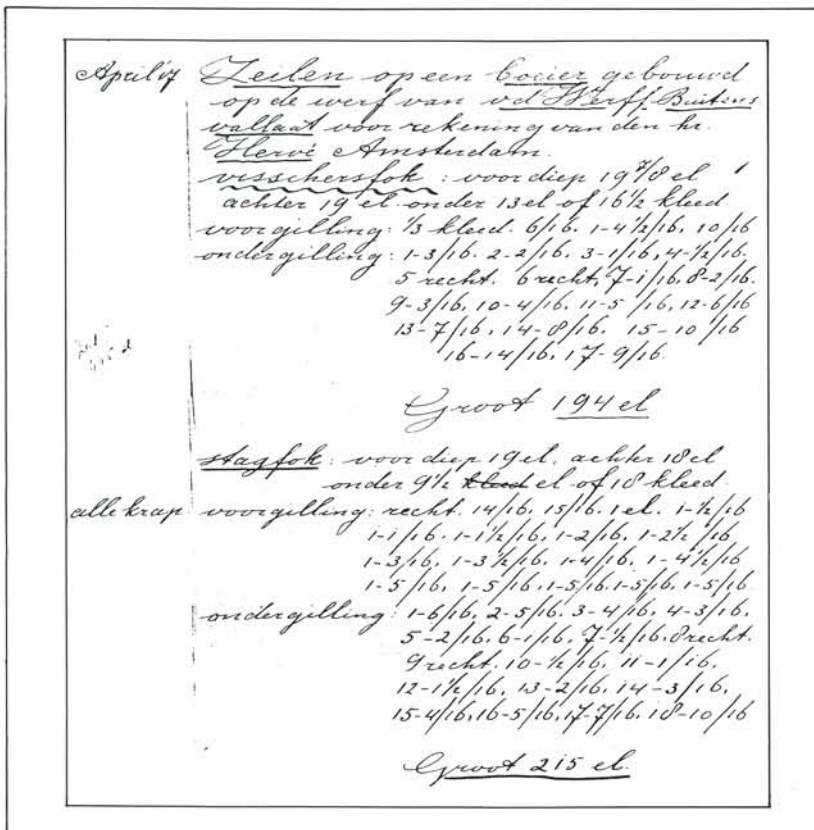 April 17 Zeilen op een boeier gebouwd
op de werf van vd Werff Buitens
vallaat voor rekening van den hr.
Hervé Amsterdam.
visschersfok : voor diep 19 7/8 el
achter 19 el onder 13 el of 16 1/2 kleed
voorgilling: 1/3 kleed. 6/16. 1-4 1/2/16. 10/16
ondergilling: 1-3/16. 2-2/16. 3-1/16, 4-1/2/16.
5 recht. 6 recht, 7-1/16. 8-2/16.
9-3/16. 10-4/16. 11-5/16, 12-6/16
13-7/16, 14-8/16. 15-10/16
16-14/16. 17-9/16.
Groot 194 el
stagfok : voor diep 19 el. achter 18 el
onder 9 1/2 kleed el of 18 kleed.
alle krap voorgilling: recht. 14/16. 15/16. 1 el. 1-1/2/16
1-1/16. 1-1 1/2/16. 1-2/16. 1-2 1/2/16
1-3/16, 1-3 1/2/16. 1-4/16. 1-4 1/2/16
1-5/16, 1-5/16. 1-5/16. 1-5/16. 1-5/16
ondergilling: 1-6/16, 2-5/16. 3-4/16. 4-3/16.
5-2/16. 6-1/16. 7-1/2/16. 8 recht.
9 recht. 10-1/2/16. 11-1/16.
12-1 1/2/16, 13-2/16. 14-3/16,
15-4/16, 16-5/16, 17-7/16. 18-10/16
Groot 215 el.